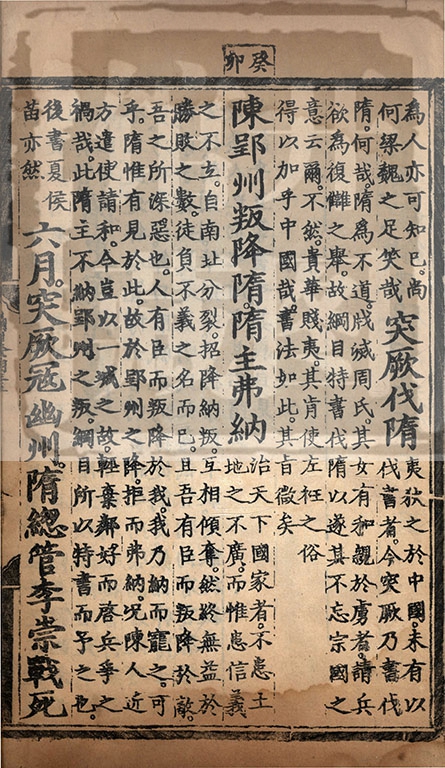 癸卯
為人亦可知已。尚
何梁魏之足笑哉
突厥伐隋
夷狄之於中國。未有以
伐書者。今突厥乃書伐
隋。何哉。隋為不道。戕滅周氏。其女有和親於虜者。請兵
欲為復讎之舉。故綱目特書伐隋以遂其不忘宗國之
意云爾。不然。貴華賤夷。其肯使左衽之俗
得以加乎中國哉。書法如此。其旨微矣
陳郢州叛降隋。隋主弗納
治天下國家者。不患土
地之不廣。而惟患信義
之不立。自南北分裂。招降納叛。互相傾奪。然終無益於
勝敗之數。徒負不義之名而已。且吾有臣而叛降於敵。
吾之所深惡也。人有臣而叛降於我。我乃納而寵之。可
乎。隋惟有見於此。故於郢州之降。拒而弗納。況陳人近
方遣使請和。今豈以一城之故。輕棄鄰好而啓兵爭之
禍哉。此隋主不納郢州之叛。綱目所以特書而予之也。
後書夏侯
苗亦然
六月。突厥寇幽州。隋總管李崇戰死